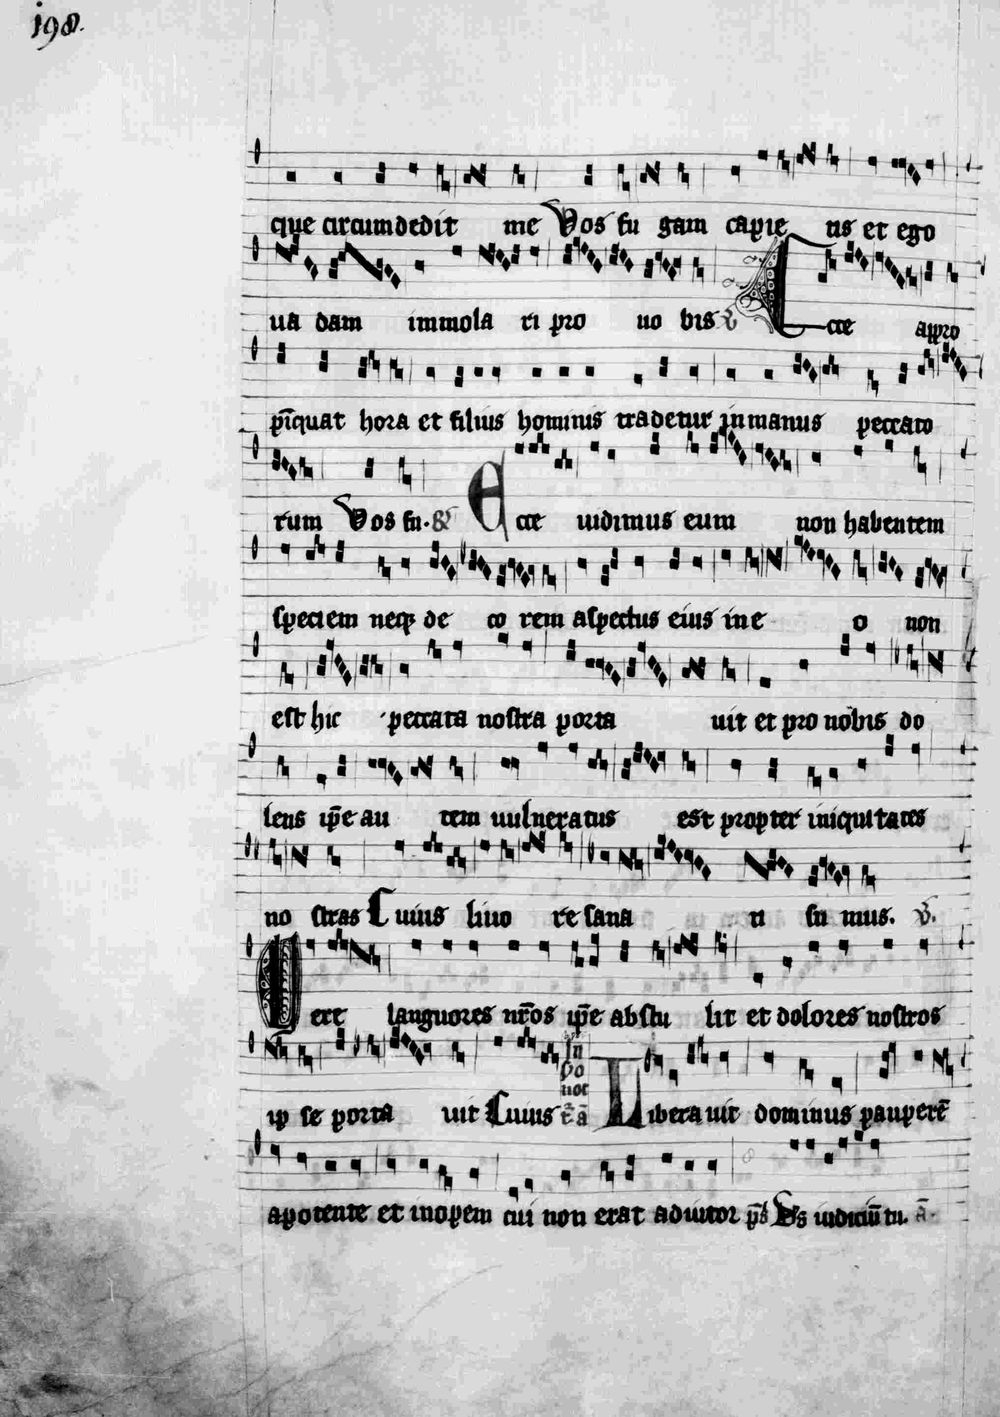 198.
que circumdedit me Vos fu gam capie tis et ego
ua dam immola ri pro uo bis V Ecce appro
pīquat hora et filius hominis tradetur in manus peccato
rum Vos fu. Ecce uidimus eum non habentem
speciem neqꝫ de co rem aspectus eius in e o non
est hic peccata nostra porta uit et pro nobis do
lens ip̄e au tem uulneratus est propter iniquitates
no stras Cuius liuo re sana ti su mus. V.
Uere languores nr̄os ip̄e abstu lit et dolores nostros
ip se porta uit Cuius
In
iio
noct
Liberauit dominus pauperē
a potente et inopem cui non erat adiutor ps̄ Ds iudiciū tu. ā.